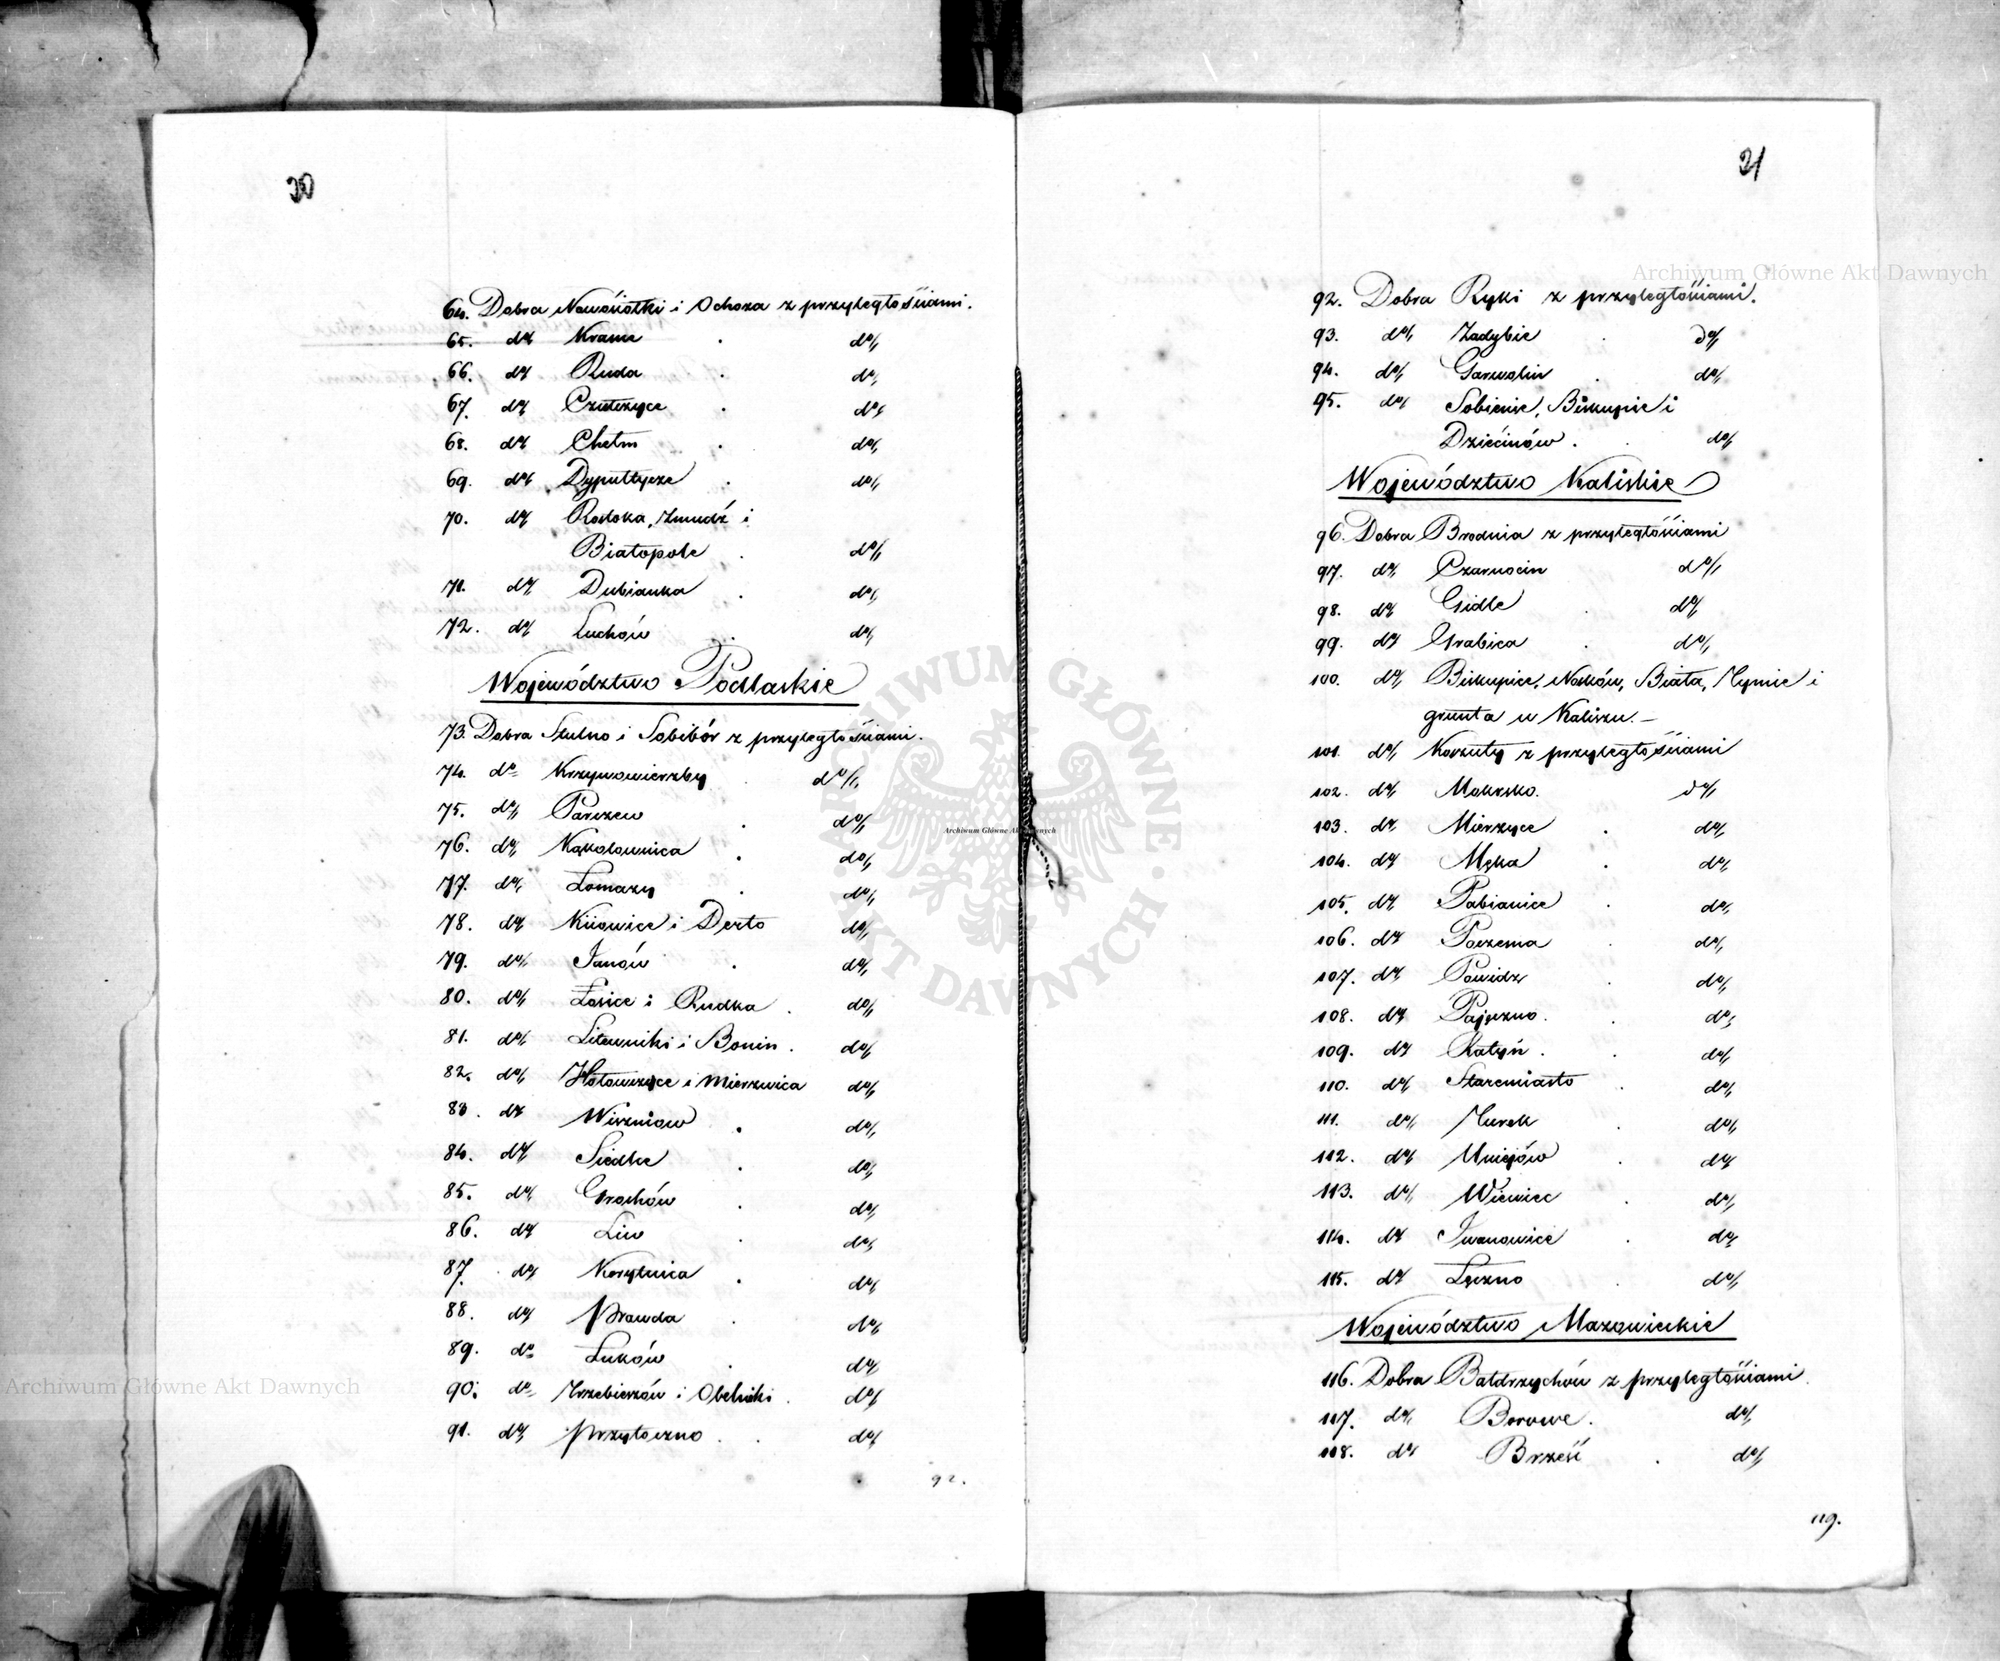 30
64. Dobra Nowosiołki i Ochoza z przyległościami.
65. do/ Krasne . do/,
66. do/ Ruda . do/,
67. do/ Czułczyce . do/,
68. do/ Chełm . do/,
69. do/ Dyputtycze . do/,
70. do/ Rostoka, Żmudź i
Białopole . do/,
71. do/ Dubianka . do/,
72. do/ Luchów . do/,
Województwo Podlaskie
73. Dobra Stulno i Sobibór z przyległościami.
74. do Krzywowierzby . do/,
75. do/, Parczew . do/,
76. do/, Kąkolownica . do/,
77. do/, Łomazy . do/,
78. do/ Kijowice i Derło do/,
79. do/, Janów . do/,
80. do/, Łosice i Rudka . do/,
81. do/, Litewniki i Bonin . do/,
82. do/, Hołowczyce i Mierzwica do/,
83. do/ Wiszniow . do/,
84. do/ Siedlce . do/,
85. do/, Grochów . do/,
86. do/ Liw . do/,
87. do/ Korytnica . do/,
88. do/ Prawda . do/,
89. do Łuków . do/,
90. do Trzebieszów i Obelniki . do/,
91. do/ Przytoczno . . do/,
92.
31
92. Dobra Ryki z przyległościami.
93. do/, Zadybie . do/
94. do/, Garwolin . do/,
95. do/ Sobienie, Biskupie i
Dziecinów . . do/,
Województwo Kaliskie
96. Dobra Brodnia z przyległościami
97. do/, Czarnocin do/,
98. do/ Gidle . do/
99. do/ Grabica . do/,
100. do/, Biskupice, Nosków, Biała, Tymie i
grunta w Kaliszu. —
101. do/, Korzuty z przyległościami
102. do/, Mokrsko. do/,
103. do/ Mierzyce . do/,
104. do/ Męka . do/,
105. do/ Pabianice . do/,
106. do/ Poczesna . do/,
107. do/ Powidz . do/,
108. do/ Pajęczno . . do/,
109. do/ Ratyń . . do/,
110. do/, Staremiasto . do/,
111. do/, Turek . do/,
112. do/ Uniejów . do/
113. do/, Wieniec . do/,
114. do/ Iwanowice . do/,
115. do/ Łęczno . do/,
Województwo Mazowieckie
116. Dobra Bałdrzychów z przyległościami.
117. do/, Borowe . do/,
118. do/ Brześć . do/,
119.
Archiwum Główne Akt Dawnych
Archiwum Główne Akt Dawnych
Archiwum Główne Akt Dawnych
ARCHIWUM GŁÓWNE · AKT DAWNYCH ·